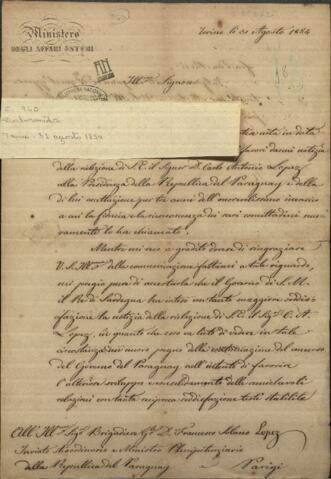 Ministero
DEGLI AFFARI ESTERI
Torino li 31 Agosto 1854
Ill.mo Signore
C. 940
Torino - 31 agosto 1854
nota in data
darmi notizia
della rielezione di S.E. il Signor D. Carlo Antonio Lopez
alla Presidenza della Repubblica del Paraguay e della
di lui accettazione per tre anni dell'onorevolissimo incarico
a cui la fiducia e la riconoscenza dei suoi concittadini
lo ha chiamato.
Mentre mi reco a gradito dovere di ringraziare
V.S. Ill.ma della comunicazione fattami a tale riguardo,
mi pregio pure di accertarla che il Governo di S.M.
il Re di Sardegna ha inteso con tanto maggiore soddis-
fazione la notizia della rielezione di S.E. il Sig.r C. A.
Lopez, in quanto che esso va lieto di vedere in tale
circostanza un nuovo pegno della del concorso
del Governo del Paraguay nell'intento di favorire
l'ulteriore sviluppo e consolidamento delle amichevoli
relazioni con tanta reciproca soddisfazione teste stabilite
All' Ill.mo Sig.r Brigadiere Cav.r D. Francesco Solano Lopez
Inviato Straordinario e Ministro Plenipotenziario
della Repubblica del Paraguay a Parigi